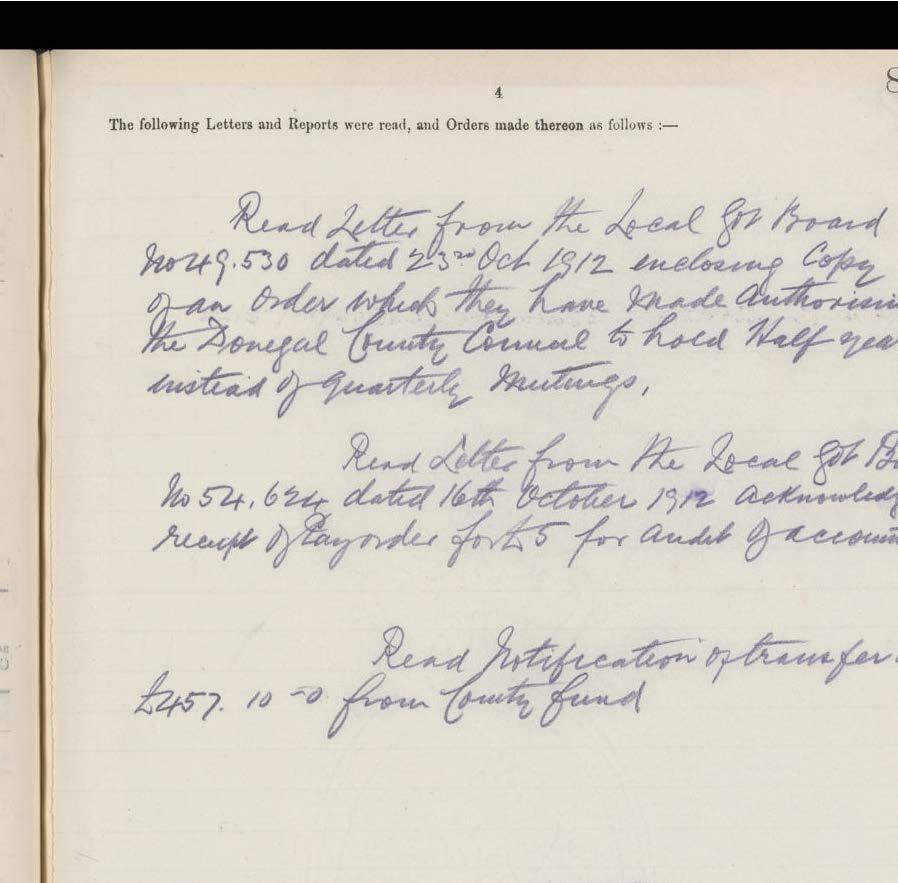 4
The following Letters and Reports were read, and Orders made thereon as follows :—
Read Letter from the Local Got Board
No 49.530 dated 23rd Oct 1912 enclosing Copy
of an Order which they have made Authorisin
the Donegal County Council to hold Half yea
instead of quarterly Meetings.
Read Letter from the Local Got Bo
No 54.624 dated 16th October 1912 acknowledg
receipt of Payorder for £5 for audit of accoun
Read Notification of transfer
£457. 10 - 0 from County fund